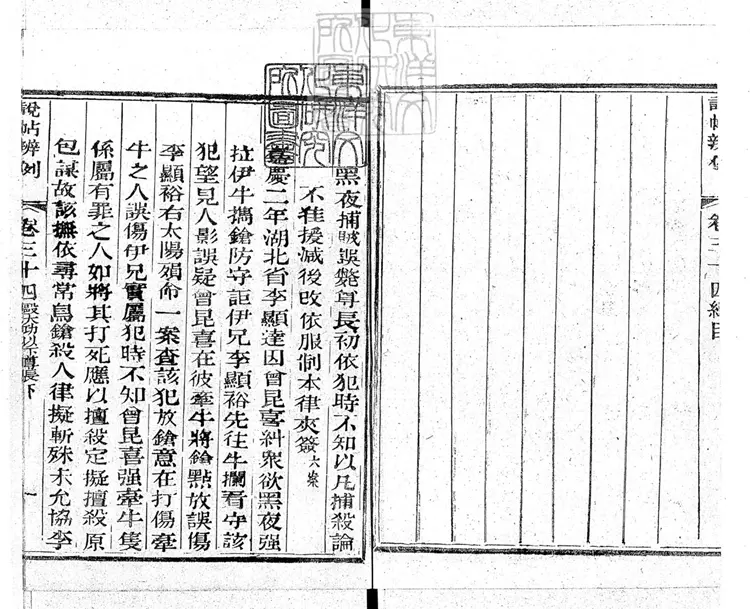 說帖辨例
卷三十四總目
黑夜捕賊誤斃尊長初依犯時不知以凡捕殺論
不准援減後改依服制本律夾簽六案
嘉慶二年湖北省李顯達因曾昆喜糾衆欲黑夜强
拉伊牛攜鎗防守詎伊兄李顯裕先往牛攔看守該
犯望見人影誤疑曾昆喜在彼牽牛將鎗點放誤傷
李顯裕右太陽殞命一案查該犯放鎗意在打傷牽
牛之人誤傷伊兄實屬犯時不知曾昆喜强牽牛隻
係屬有罪之人如將其打死應以擅殺定擬擅殺原
包謀故該撫依尋常鳥鎗殺人律擬斬殊未允協李
說帖辨例
卷三十四毆大功以下尊長下
一